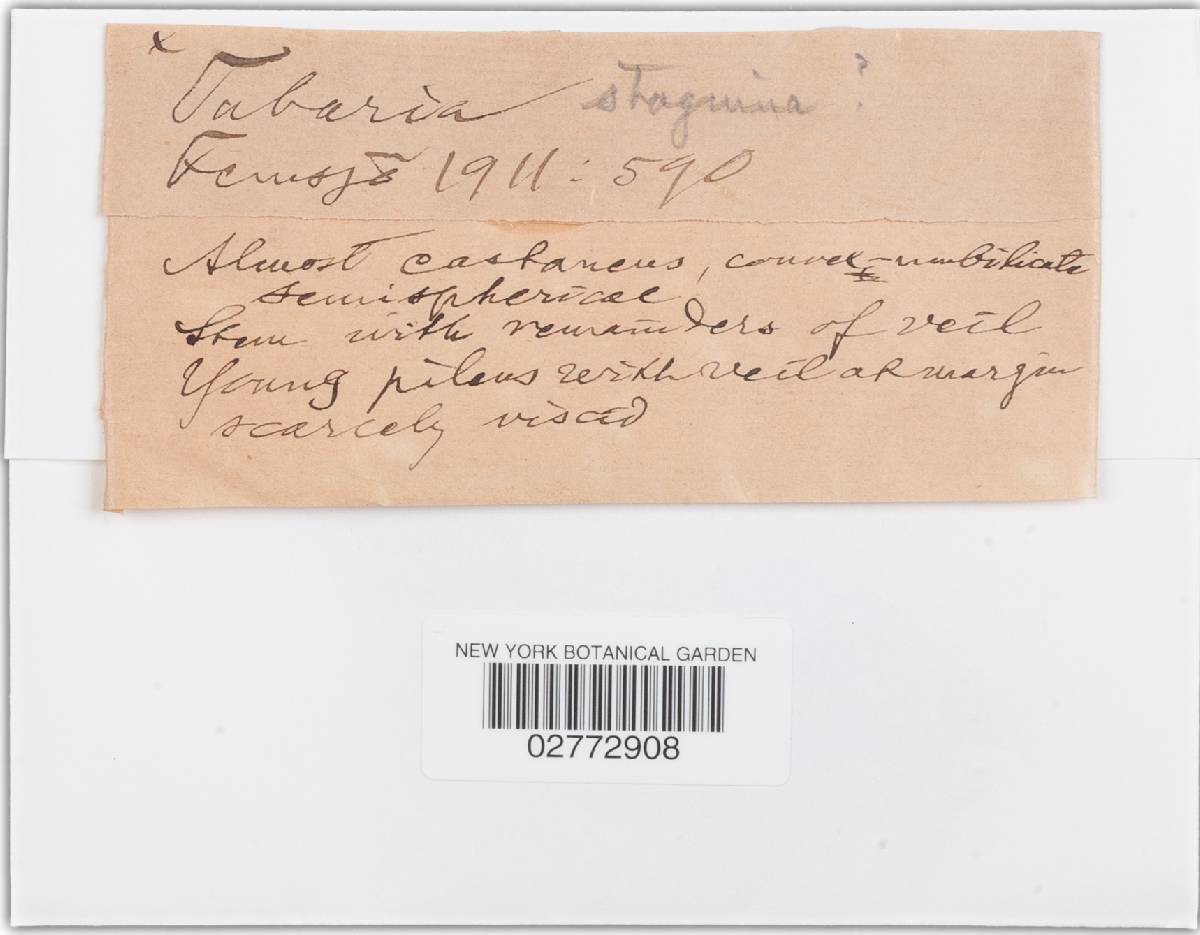 x
Tubaria stagnina ?
Femsjö 1911 : 590
Almost castaneus, convex-umbilicate
semispherical
Stem with remainders of veil
Young pileus with veil at margin
scarcely viscid
NEW YORK BOTANICAL GARDEN
02772908